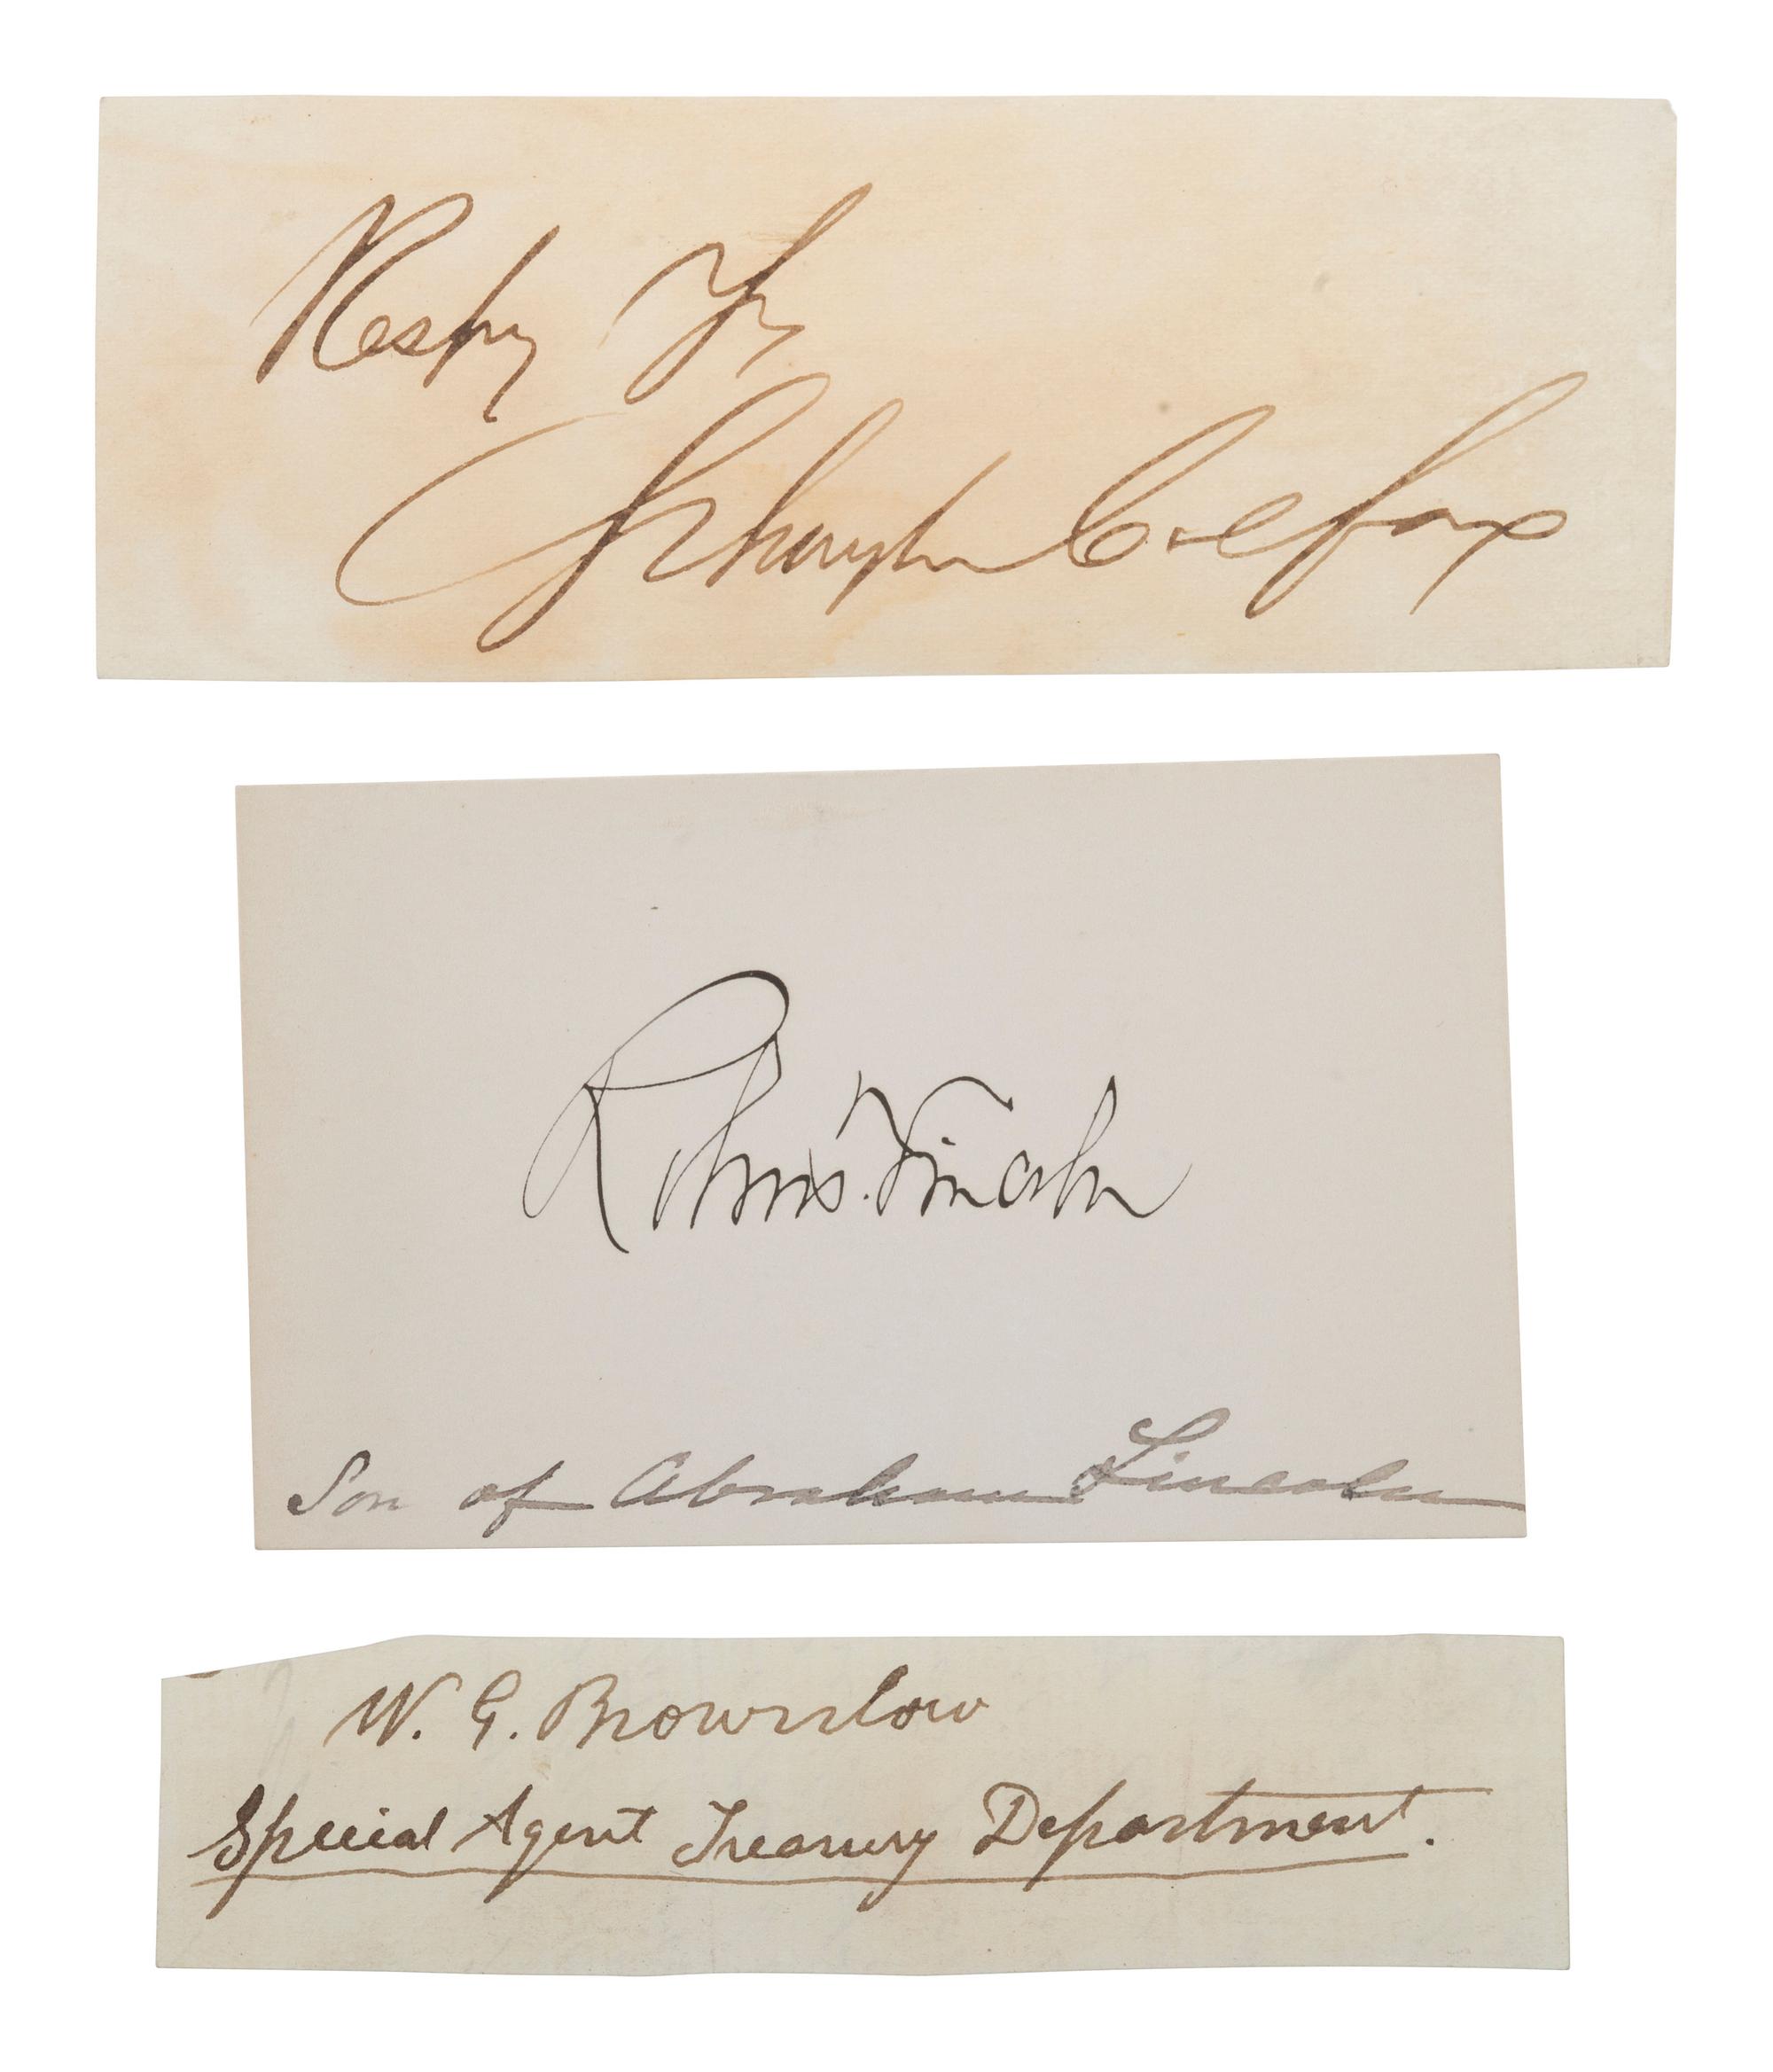 Respy Yr
Schuyler Colfax
Robert T. Lincoln
Son of Abraham Lincoln
W. G. Brownlow
Special Agent Treasury Department.